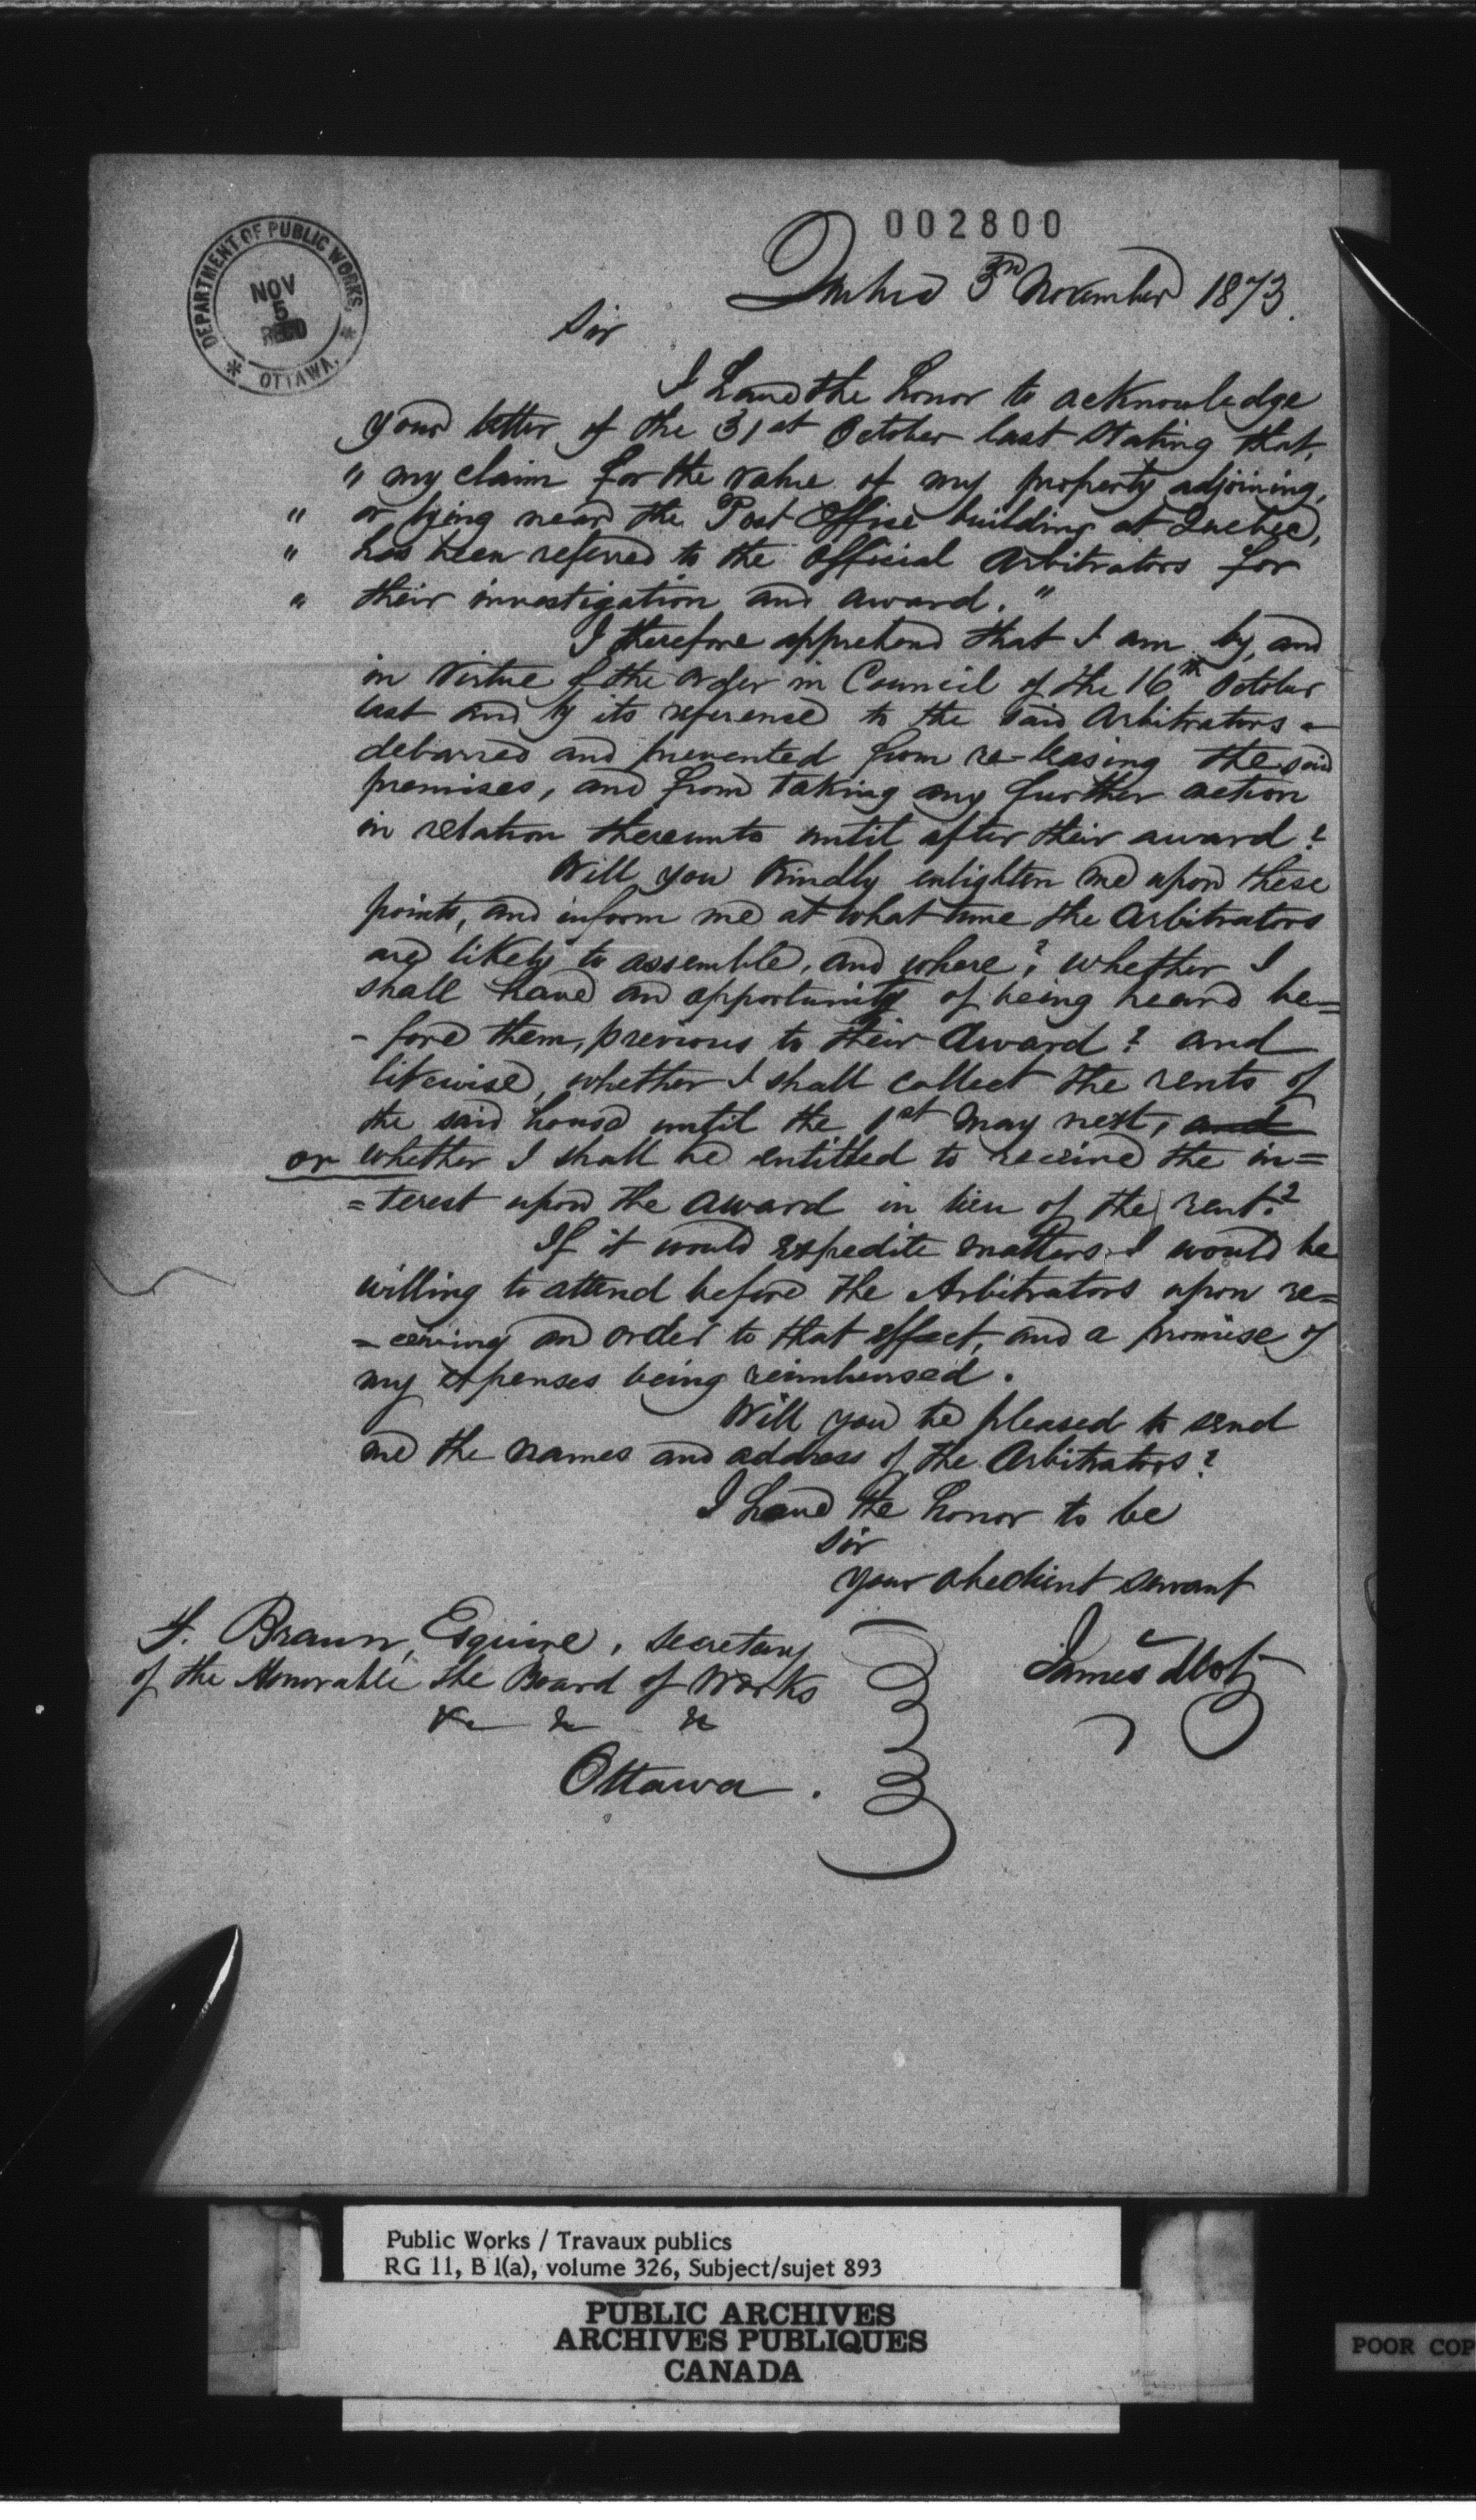 002800
DEPARTMENT OF PUBLIC WORKS
NOV
5
REC'D
* OTTAWA. *
Quebec 3rd November 1873.
Sir
I have the honor to acknowledge
your letter of the 31st October last stating that,
" my claim for the value of my property adjoining,
" or lying near the Post Office building at Quebec,
" has been referred to the Official Arbitrators for
" their investigation and award."
I therefore apprehend that I am by, and
in virtue of the Order in Council of the 16th October
last and by its reference to the said Arbitrators -
debarred and prevented from re-leasing the said
premises, and from taking any further action
in relation thereunto until after their award?
Will you kindly enlighten me upon these
points, and inform me at what time the Arbitrators
are likely to assemble, and where? whether I
shall have an opportunity of being heard be=
- fore them, previous to their Award? and
likewise, whether I shall collect the rents of
the said house until the 1st May next, and
or whether I shall be entitled to receive the in=
= terest upon the award in lieu of the rent?
If it would expedite matters I would be
willing to attend before the Arbitrators upon re=
= ceiving an order to that effect, and a promise of
my expenses being reimbursed.
Will you be pleased to send
me the names and address of the Arbitrators?
I have the honor to be
Sir
your obedient servant
James
F. Braun, Esquire, Secretary
of the Honorable the Board of Works
&c &c &c
Ottawa.
Public Works / Travaux publics
RG 11, B 1(a), volume 326, Subject/sujet 893
PUBLIC ARCHIVES
ARCHIVES PUBLIQUES
CANADA
POOR COP